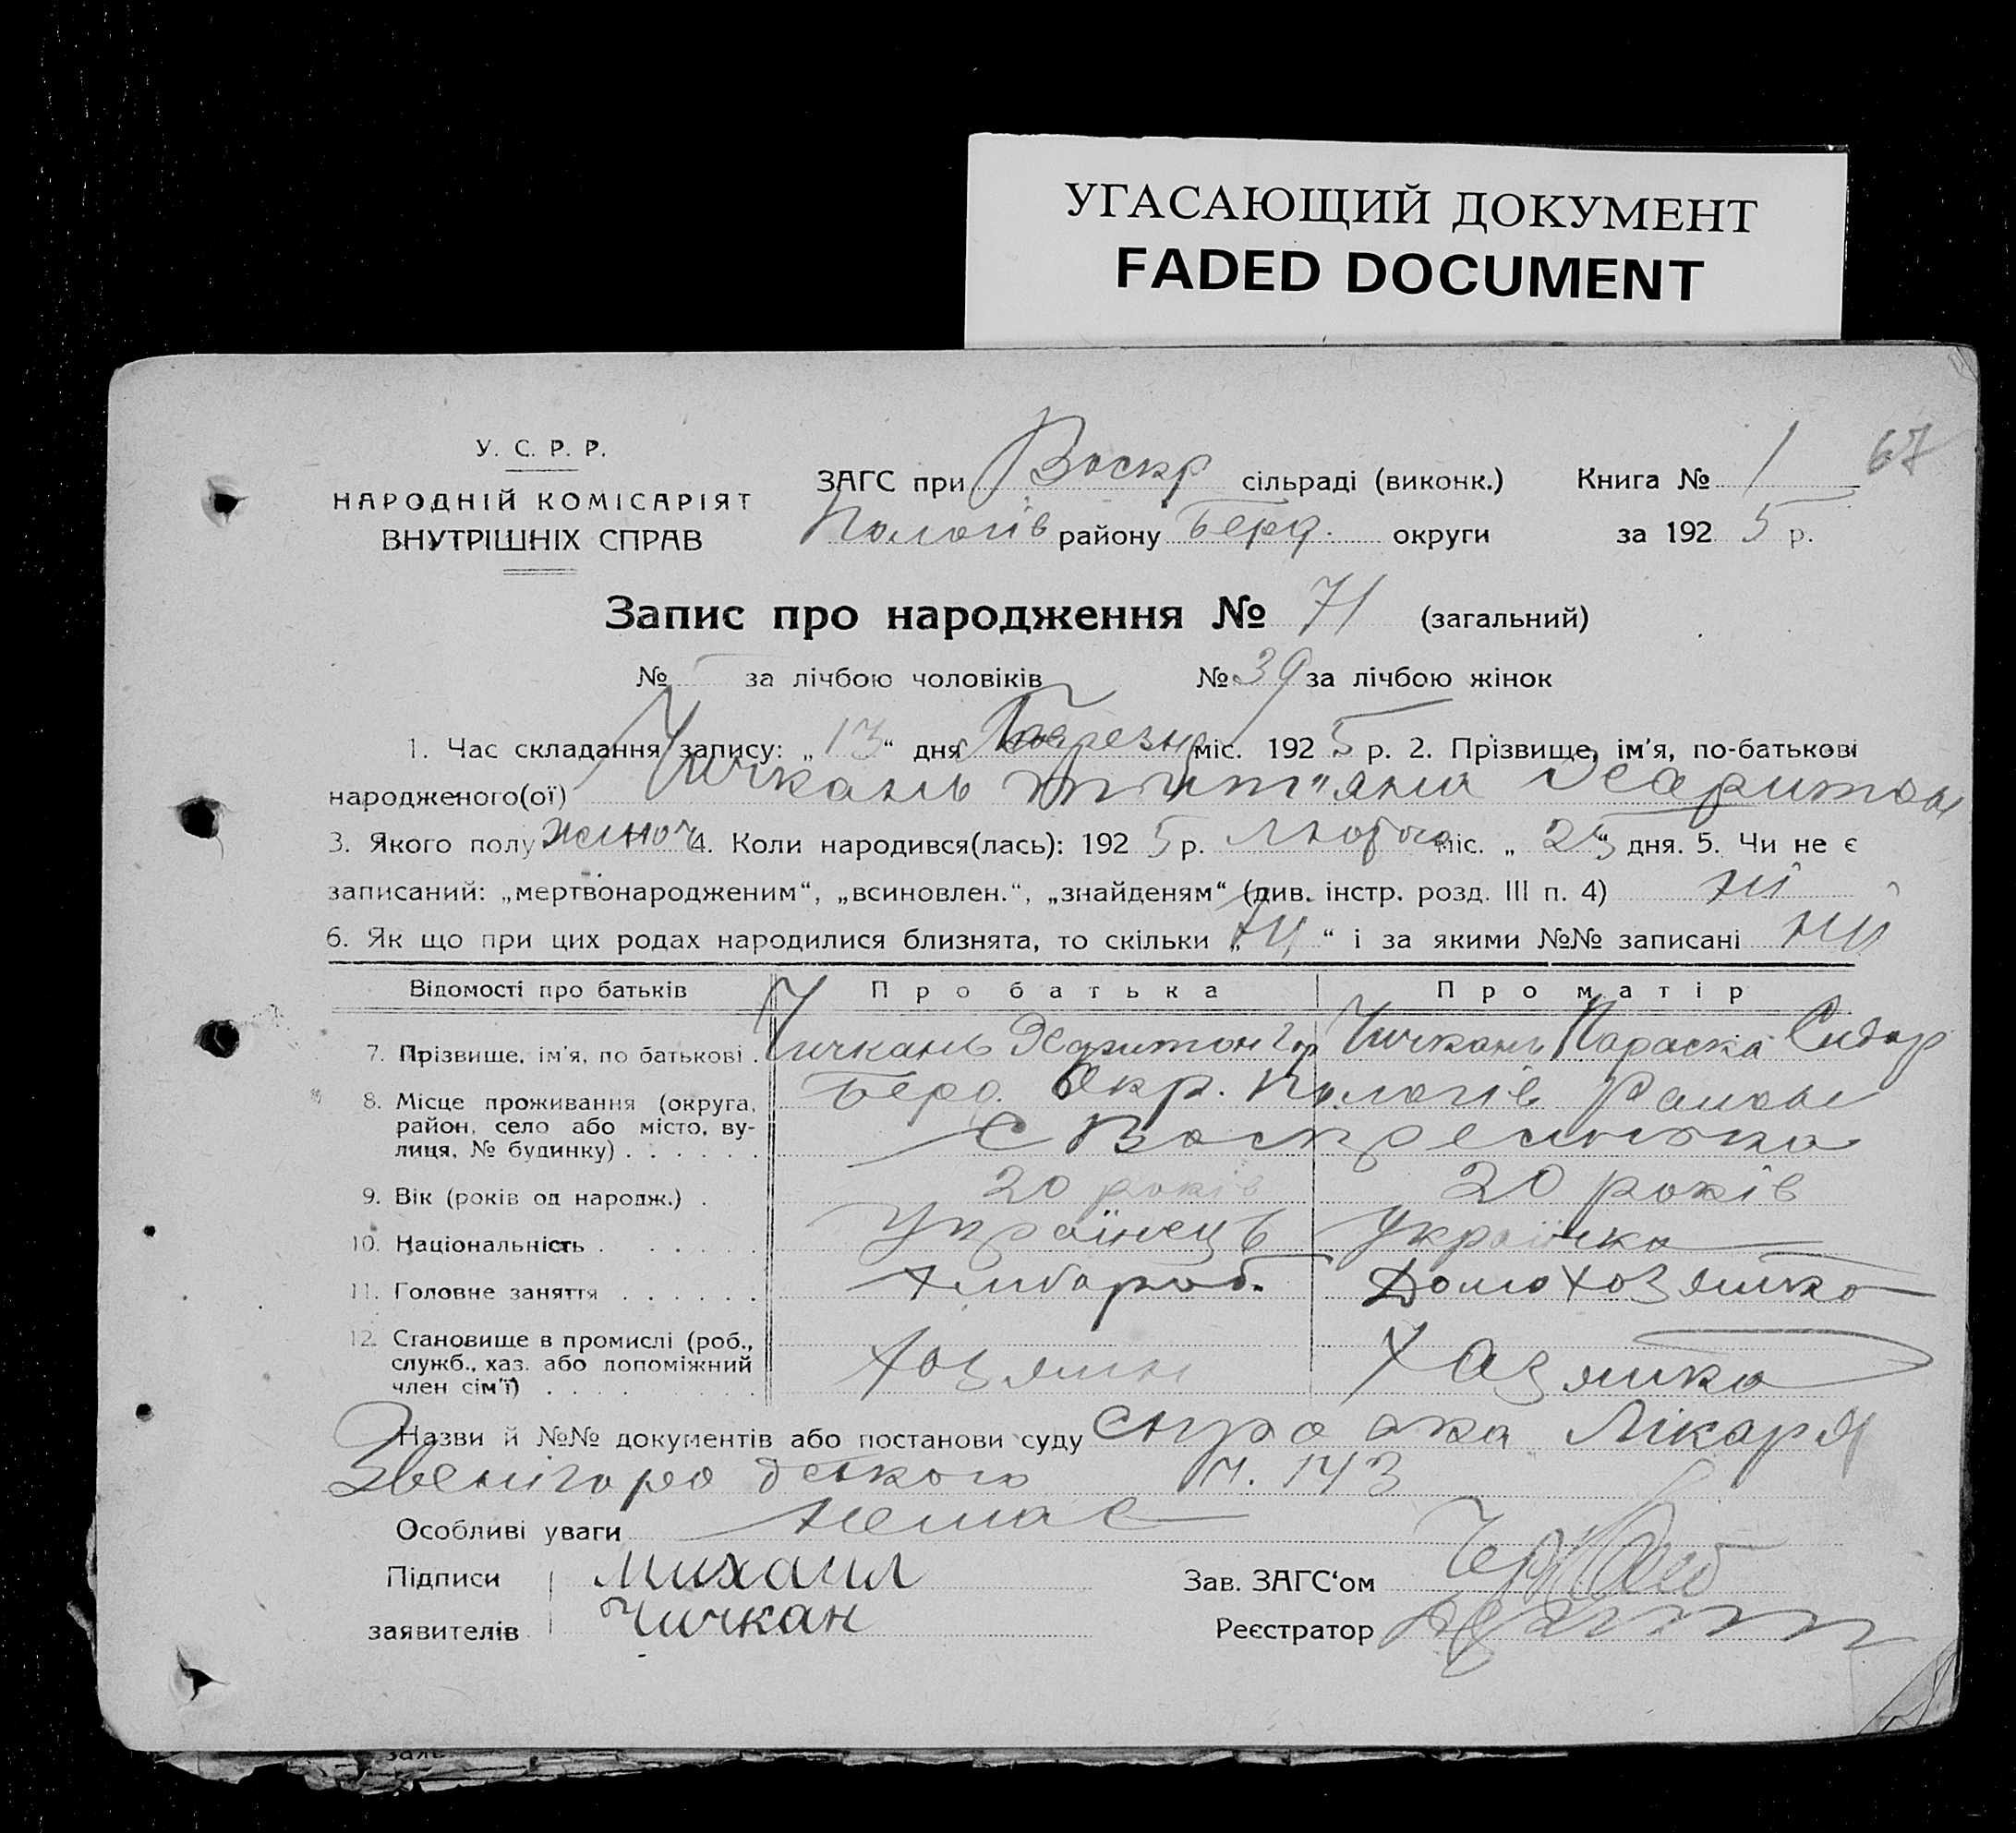 УГАСАЮЩИЙ ДОКУМЕНТ
FADED DOCUMENT
67
У. С. Р. Р.
НАРОДНІЙ КОМІСАРІЯТ
ВНУТРІШНІХ СПРАВ
ЗАГС при Воскр сільраді (виконк.) Книга № 1
Пологів району Берд. округи за 192 5 р.
Запис про народження № 71 (загальний)
№ за лічбою чоловіків № 39 за лічбою жінок
1. Час складання запису: „ 13 “ дня Березня міс. 192 5 р. 2. Прізвище, ім'я, по-батькові
народженого(ої) Чичкань Харитон
3. Якого полу жіноч 4. Коли народився(лась): 192 5 р. Лютого міс. „ 25 “ дня. 5. Чи не є
записаний: „мертвонародженим“, „всиновлен.“, „знайденям“ (див. інстр. розд. III п. 4) ні
6. Як що при цих родах народилися близнята, то скільки „ ні “ і за якими №№ записані ні
Відомості про батьків Про батька Про матір
7. Прізвище, ім'я, по батькові . Чичкань Харитон Чичкань Параска Сидор
8. Місце проживання (округа, Берд. Окр. Пологів Район
район, село або місто, ву- С Воскресенька
лиця, № будинку) . . . . . .
9. Вік (років од народж.) . 20 років 20 років
10. Національність . . . . . Українець Українка
11. Головне заняття . . . . . . Хлібороб. Домохозяйка
12. Становище в промислі (роб.,
служб., хаз. або допоміжний Хозяин Хазяйка
член сім'ї) . . . . .
Назви й №№ документів або постанови суду Лікаря
Звенігородського 143
Особливі уваги немає
Підписи Михаил Зав. ЗАГС‘ом
заявителів Чичкан Реєстратор